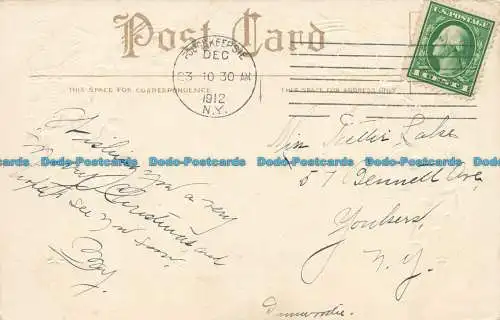 Post Card
POUGHKEEPSIE
DEC
23 10 30 AM
1912
N.Y.
U.S. POSTAGE
1 CENT 1
THIS SPACE FOR CORRESPONDENCE
THIS SPACE FOR ADDRESS ONLY
Wishing you a very
Merry Christmas and
will see you soon.
May.
Miss Nettie Lake
57 Bennett Ave
Yonkers
N.Y.
Dunwoodie.
Dodo-Postcards Dodo-Postcards Dodo-Postcards Dodo-Postcards Dodo-Postcards Dodo-Postcards